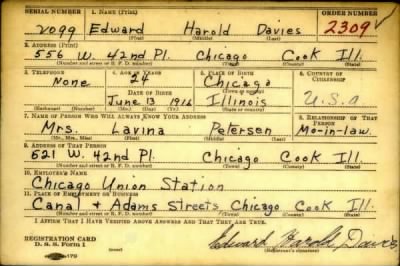 SERIAL NUMBER 1. NAME (Print) ORDER NUMBER
2099 Edward Harold Davies 2309
(First) (Middle) (Last)
2. ADDRESS (Print)
556 W. 42nd Pl. Chicago Cook Ill.
(Number and street or R. F. D. number) (Town) (County) (State)
3. TELEPHONE 4. AGE IN YEARS 5. PLACE OF BIRTH 6. COUNTRY OF CITIZENSHIP
None 24 Chicago
DATE OF BIRTH (Town or county)
June 13 1916 Illinois U.S.a
(Exchange) (Number) (Mo.) (Day) (Yr.) (State or country)
7. NAME OF PERSON WHO WILL ALWAYS KNOW YOUR ADDRESS 8. RELATIONSHIP OF THAT PERSON
Mrs. Lavina Petersen Mo-in-law.
(Mr., Mrs., Miss) (First) (Middle) (Last)
9. ADDRESS OF THAT PERSON
521 W. 42nd Pl. Chicago Cook Ill.
(Number and street or R. F. D. number) (Town) (County) (State)
10. EMPLOYER'S NAME
Chicago Union Station
11. PLACE OF EMPLOYMENT OR BUSINESS
Canal + Adams Streets Chicago Cook Ill.
(Number and street or R. F. D. number) (Town) (County) (State)
I AFFIRM THAT I HAVE VERIFIED ABOVE ANSWERS AND THAT THEY ARE TRUE.
REGISTRATION CARD
D. S. S. Form 1 Edward Harold Davies
(Registrant's signature)